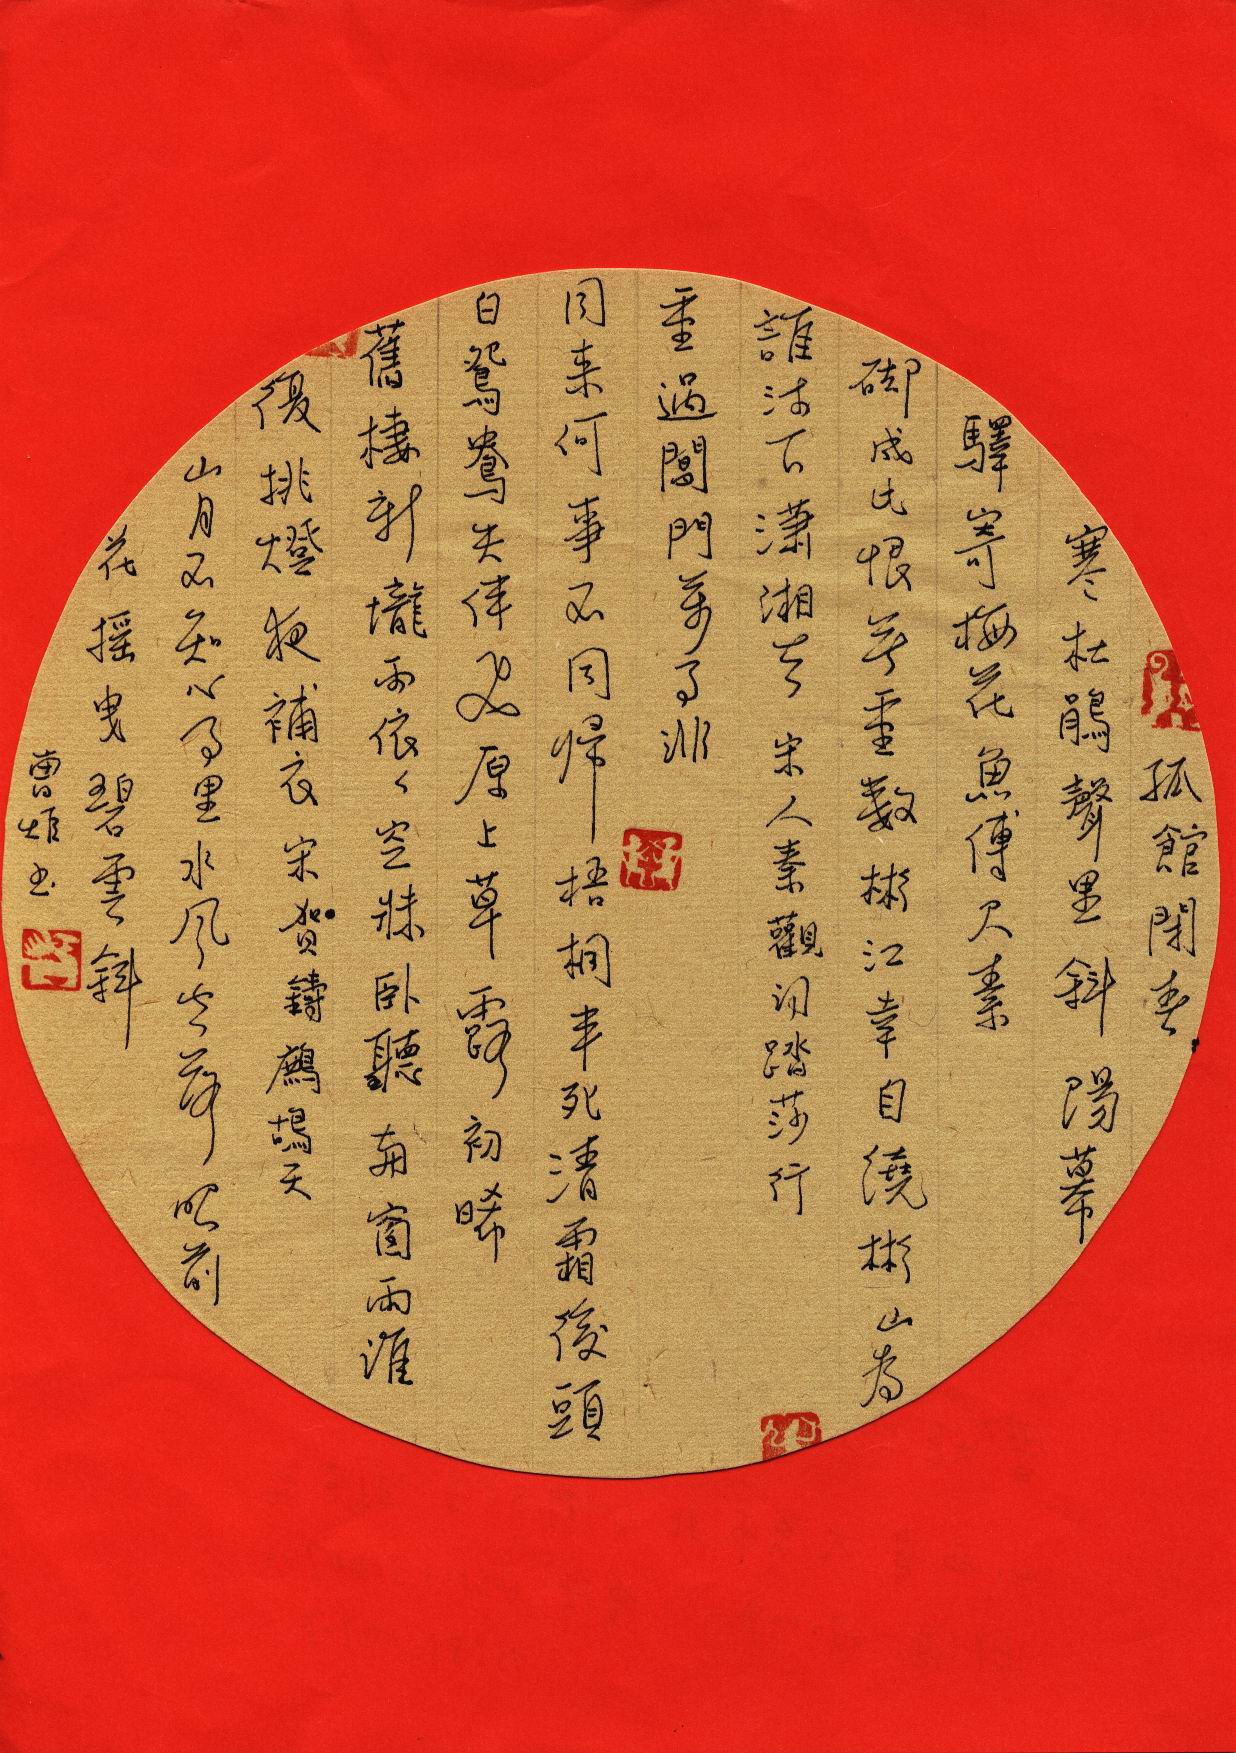 孤館閉春
寒杜鵑聲里斜陽暮
驛寄梅花魚傅尺素
砌成此恨無重數彬江幸自繞彬山為
誰流下瀟湘去 宋人秦觀詞踏莎行
重過閶門萬事非
同來何事不同歸梧桐半死清霜後頭
白鴛鴦失伴飛原上草露初晞
舊棲新壠兩依々空牀臥聽南窗雨誰
復挑燈夜補衣宋賀鑄鷓鴣天
山月不知心事里水風空落眼前
花搖曳碧雲斜
曹书